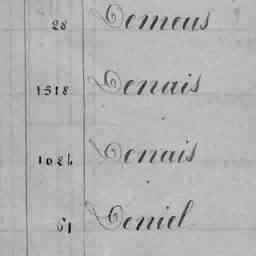 28 Demeus
1518 Denais
1084 Denais
61 Deniel